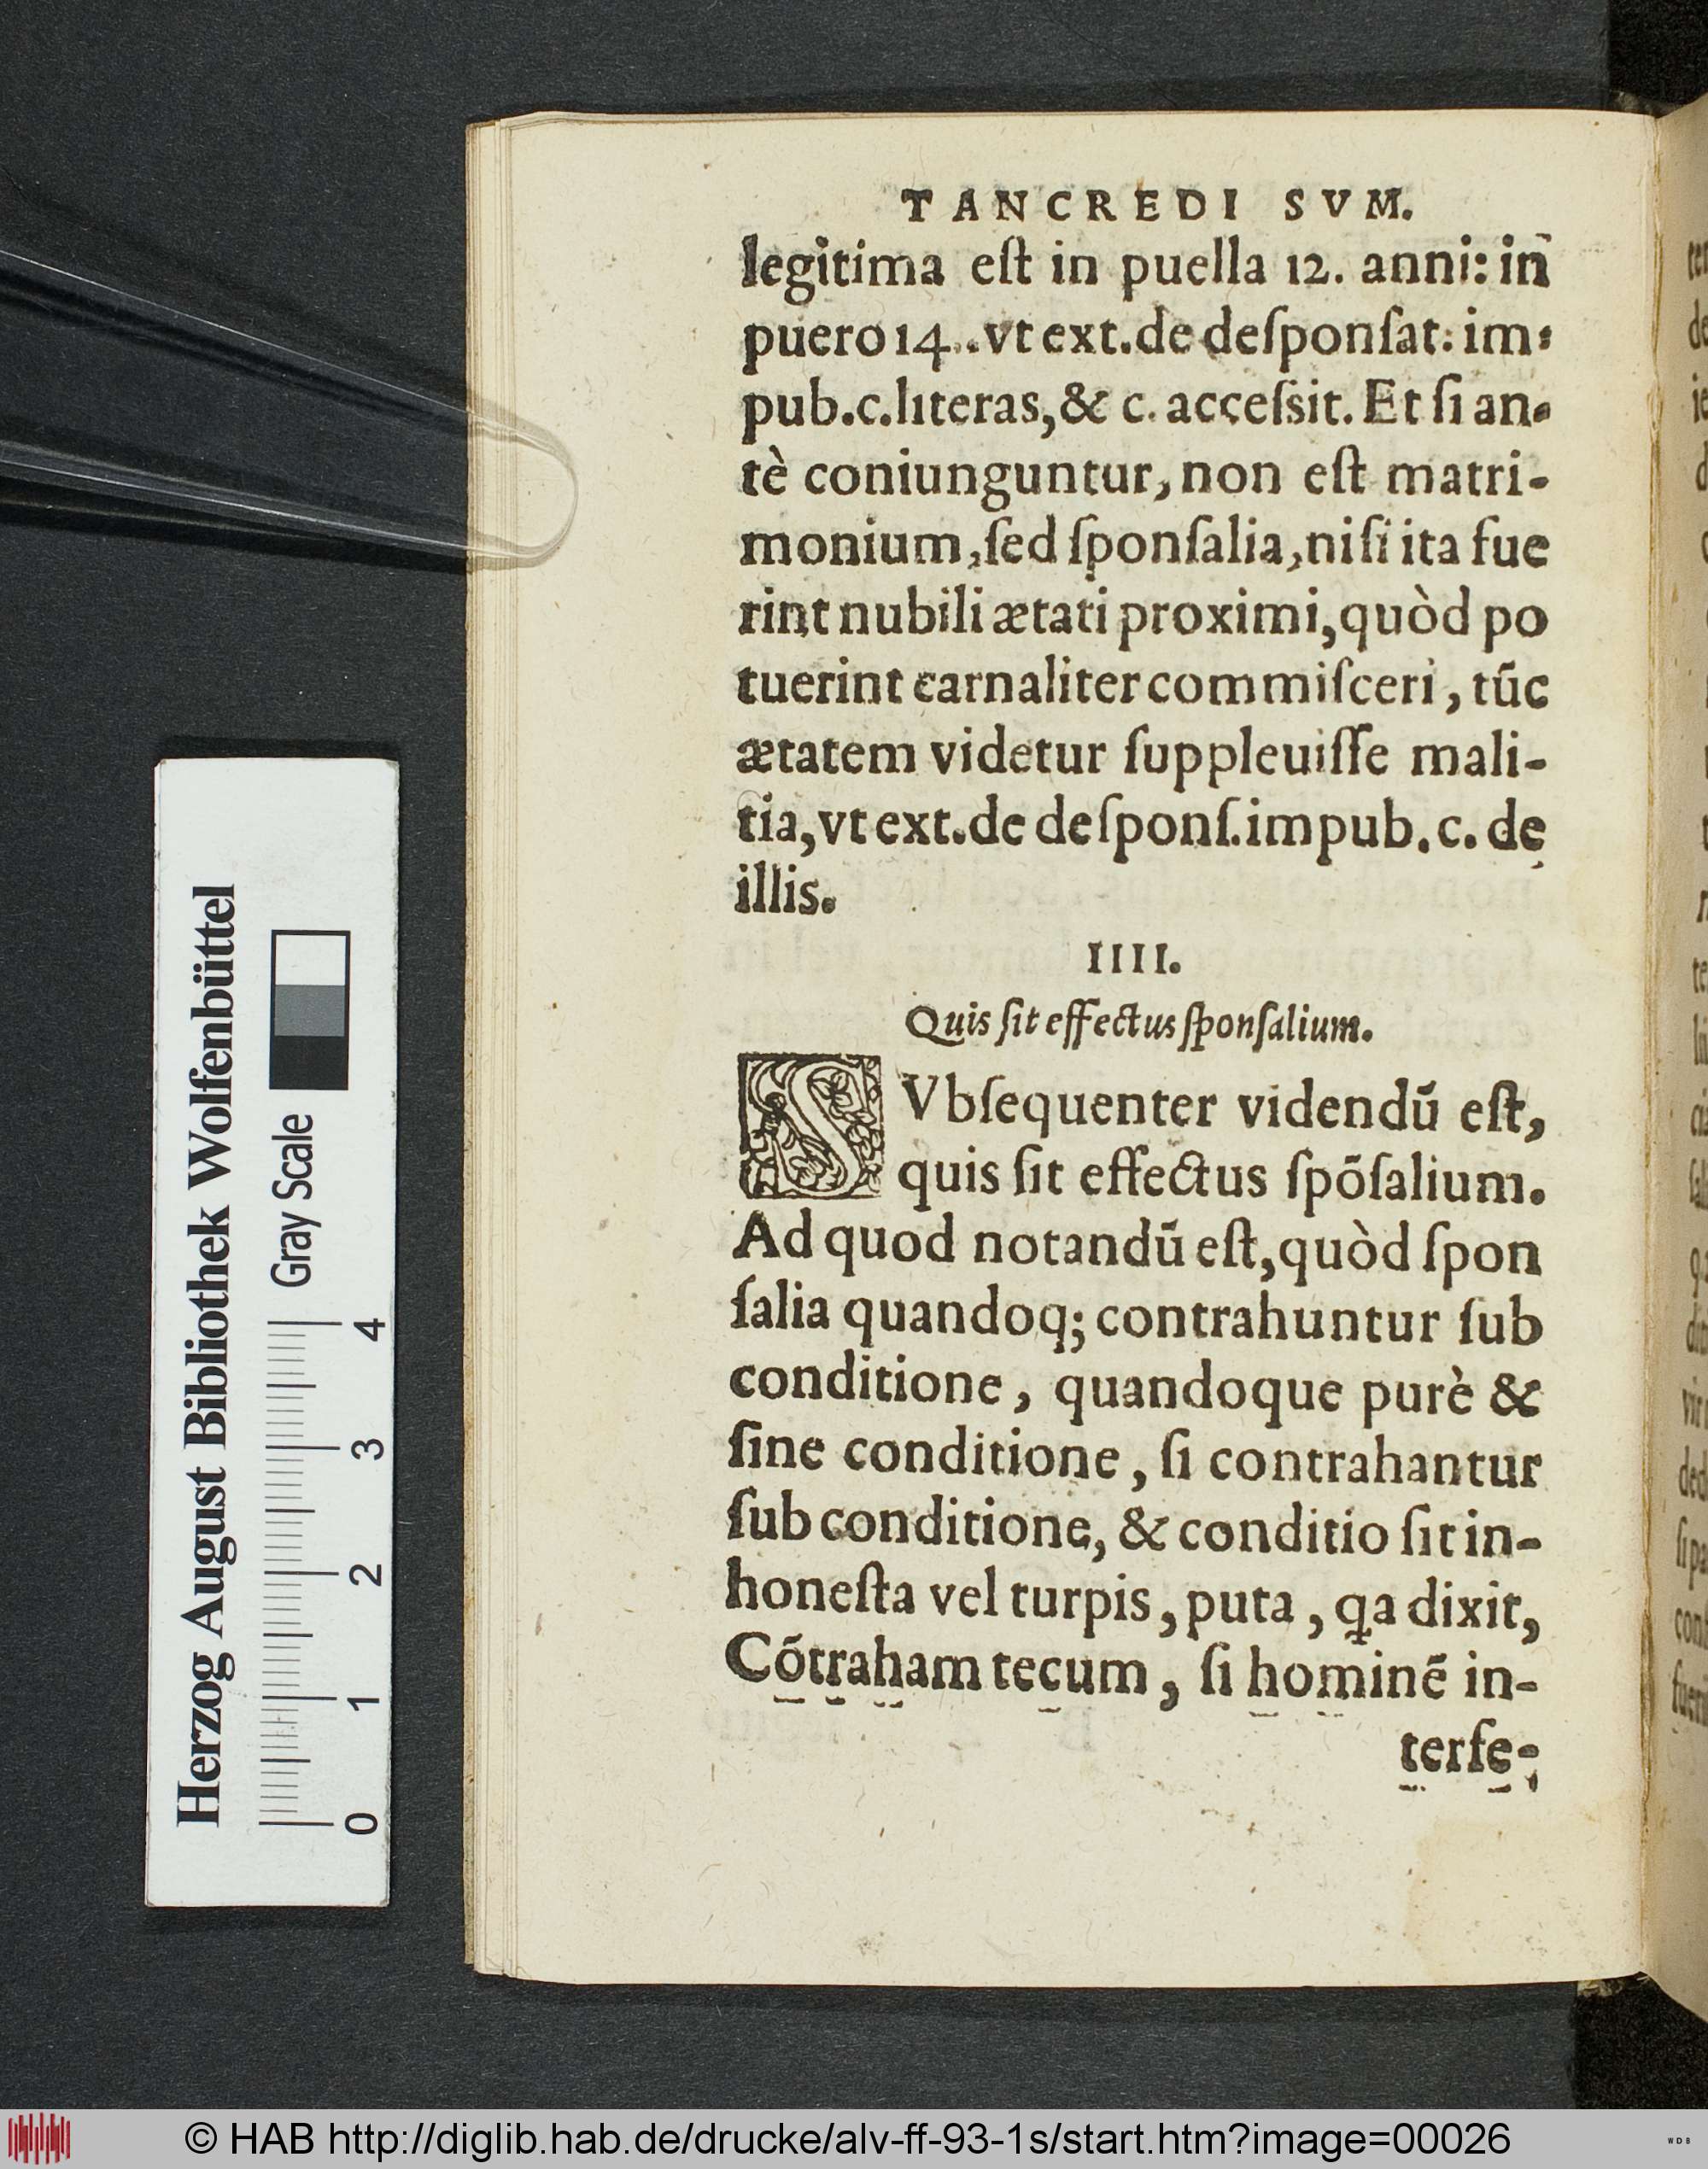 TANCREDI SVM.
legitima eſt in puella 12. anni: in
puero 14. .vt ext.de deſponſat: im-
pub.c.literas,& c. acceſsit. Et ſi an-
tè coniunguntur, non eſt matri-
monium, ſed ſponſalia, niſi ita fue
rint nubili ætati proximi, quòd po
tuerint carnaliter commiſceri, tūc
ætatem videtur ſuppleuiſſe mali-
tia, vt ext.de deſponſ.impub.c. de
illis.
IIII.
Quis ſit effectus ſponſalium.
SVbſequenter videndū eſt,
quis ſit effectus ſpōſalium.
Ad quod notandū eſt, quòd ſpon
ſalia quandoq; contrahuntur ſub
conditione, quandoque purè &
ſine conditione, ſi contrahantur
ſub conditione, & conditio ſit in-
honeſta vel turpis, puta, ꝗa dixit,
Cōtraham tecum, ſi hominē in-
terfe-
Herzog August Bibliothek Wolfenbüttel
Gray Scale
0 1 2 3 4
© HAB http://diglib.hab.de/drucke/alv-ff-93-1s/start.htm?image=00026
WDB